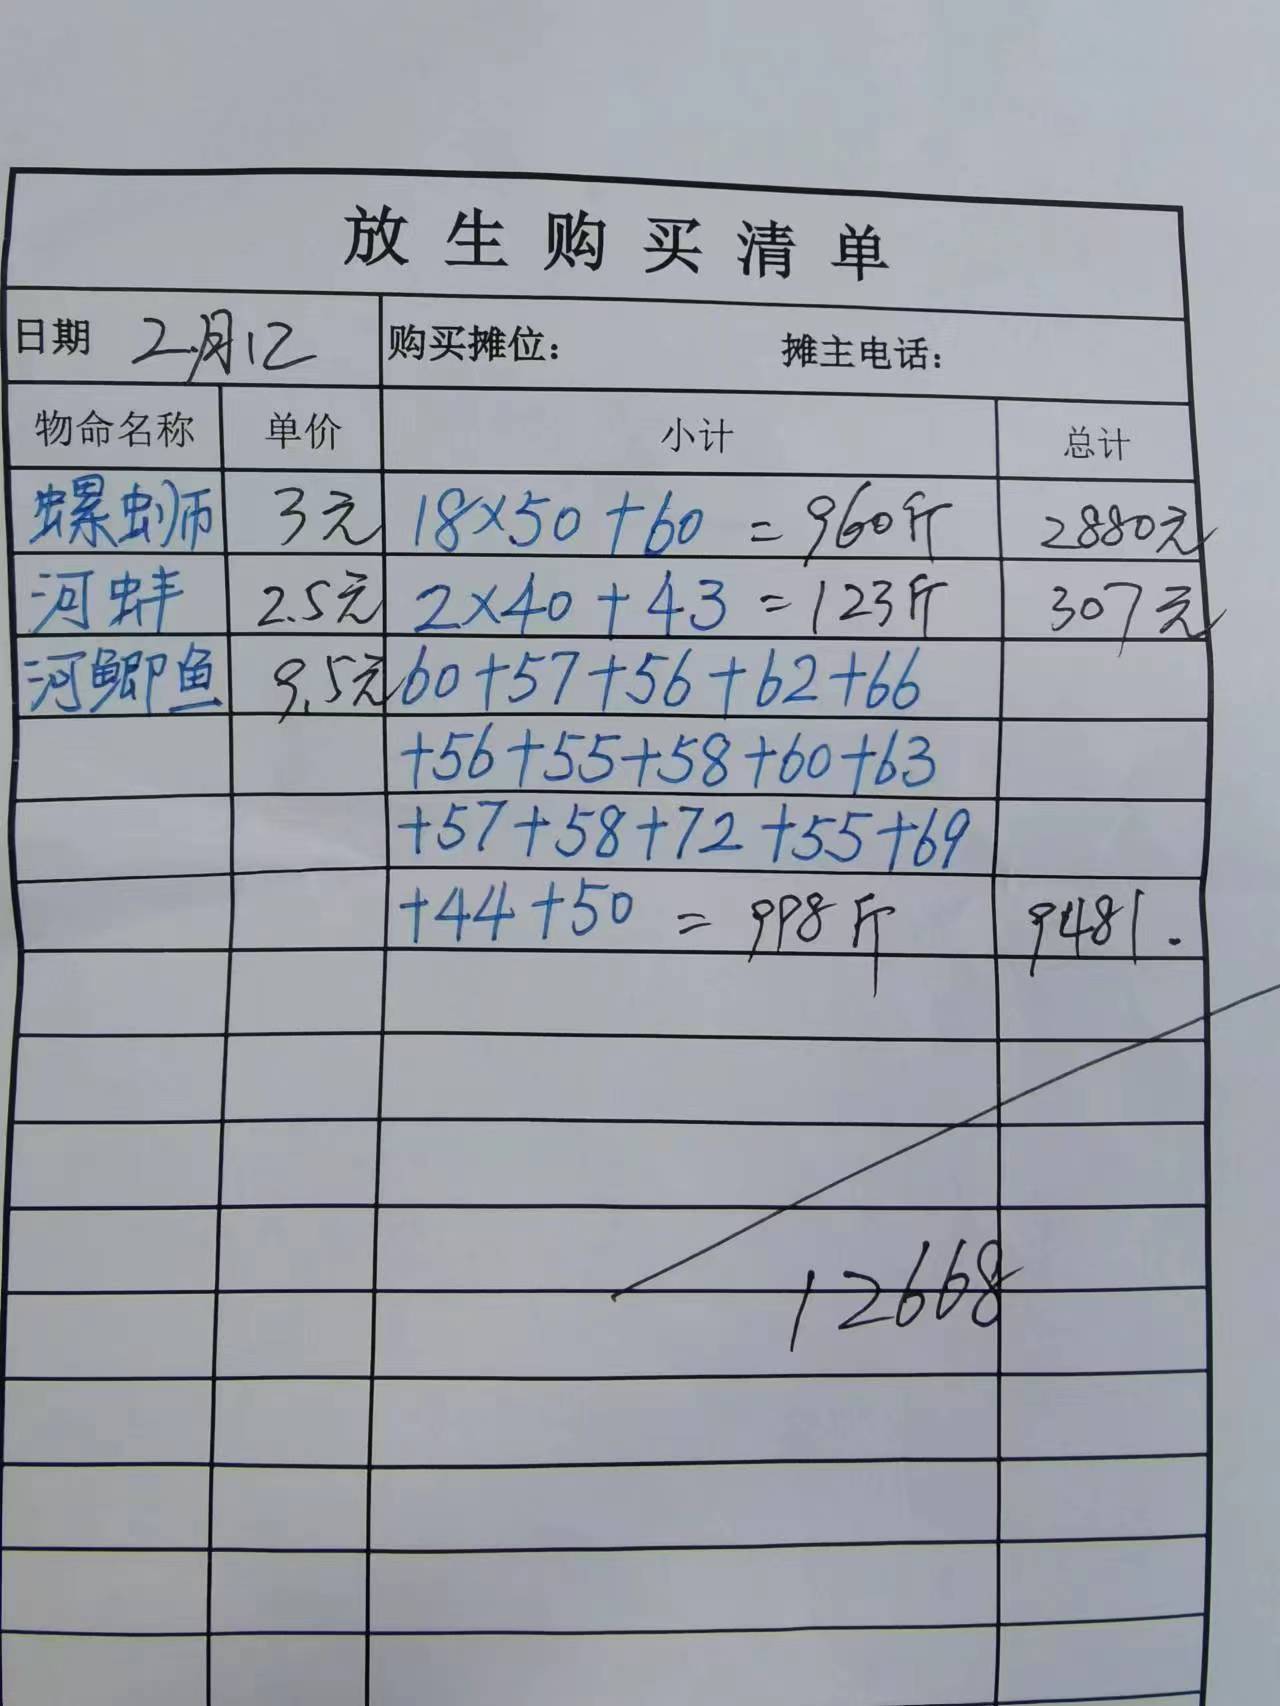 放生购买清单
日期 2.月12 购买摊位： 摊主电话：
物命名称 单价 小计 总计
螺蛳 3元 18×50+60 = 960斤 2880元
河蚌 2.5元 2×40+43 = 123斤 307元
河鲫鱼 9.5元 60+57+56+62+66
+56+55+58+60+63
+57+58+72+55+69
+44+50 = 998斤 9481.
12668